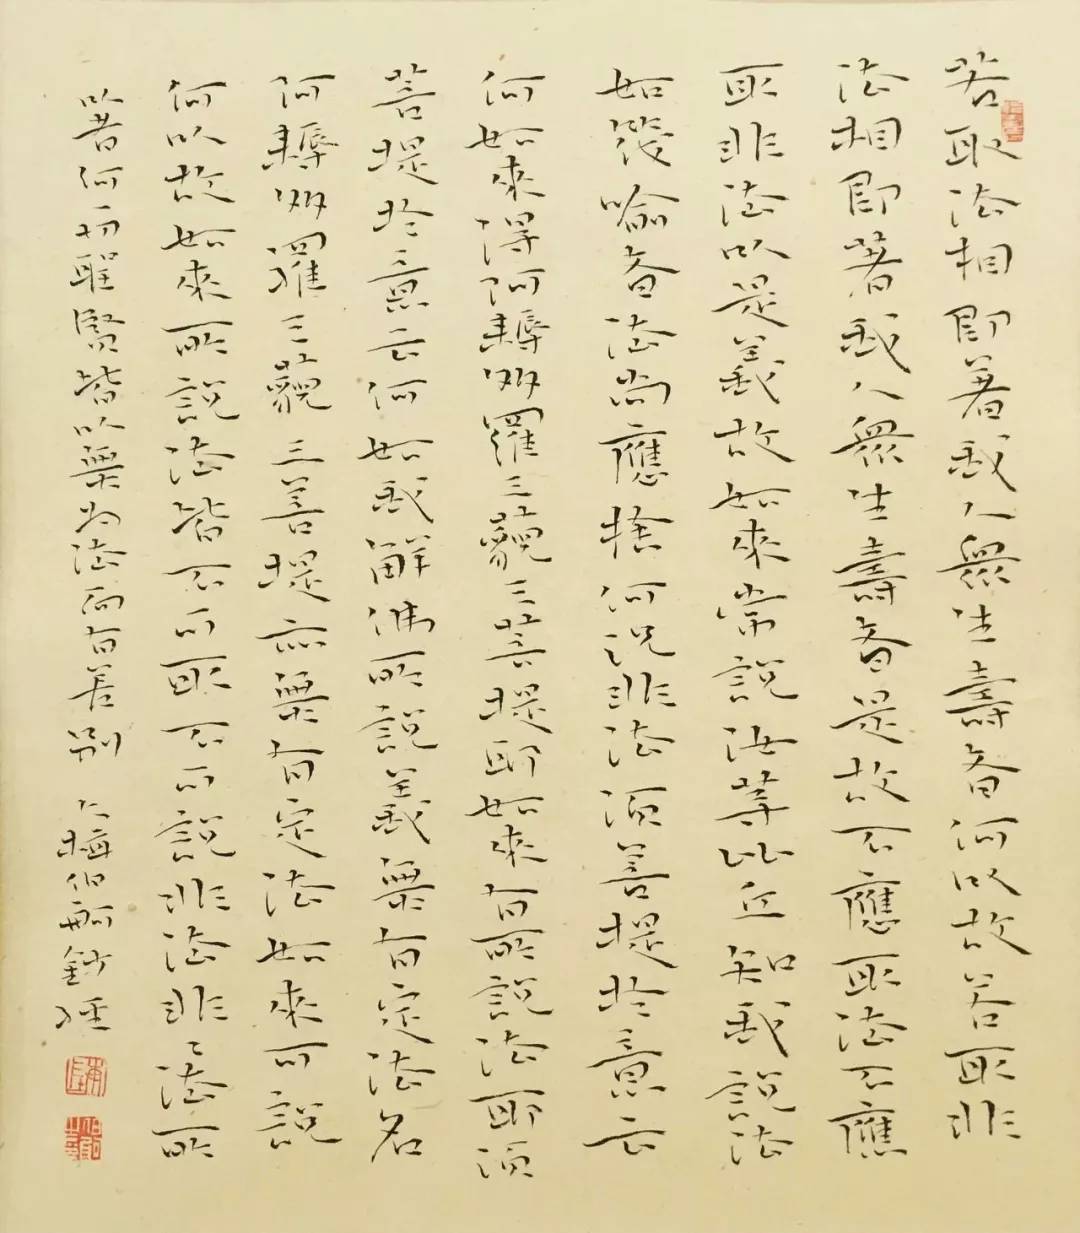 若取法相即著我人眾生壽者何以故若取非
法相即著我人眾生壽者是故不應取法不應
取非法以是義故如來常說汝等比丘知我說法
如筏喻者法尚應捨何況非法須菩提於意云
何如來得阿耨多羅三藐三菩提耶如來有所說法耶須
菩提於意云何如我解佛所說義無有定法名
阿耨多羅三藐三菩提亦無有定法如來可說
何以故如來所說法皆不可取不可說非法非〻法所
以者何一切聖賢皆以無為法而有差別 梅伯鈔經